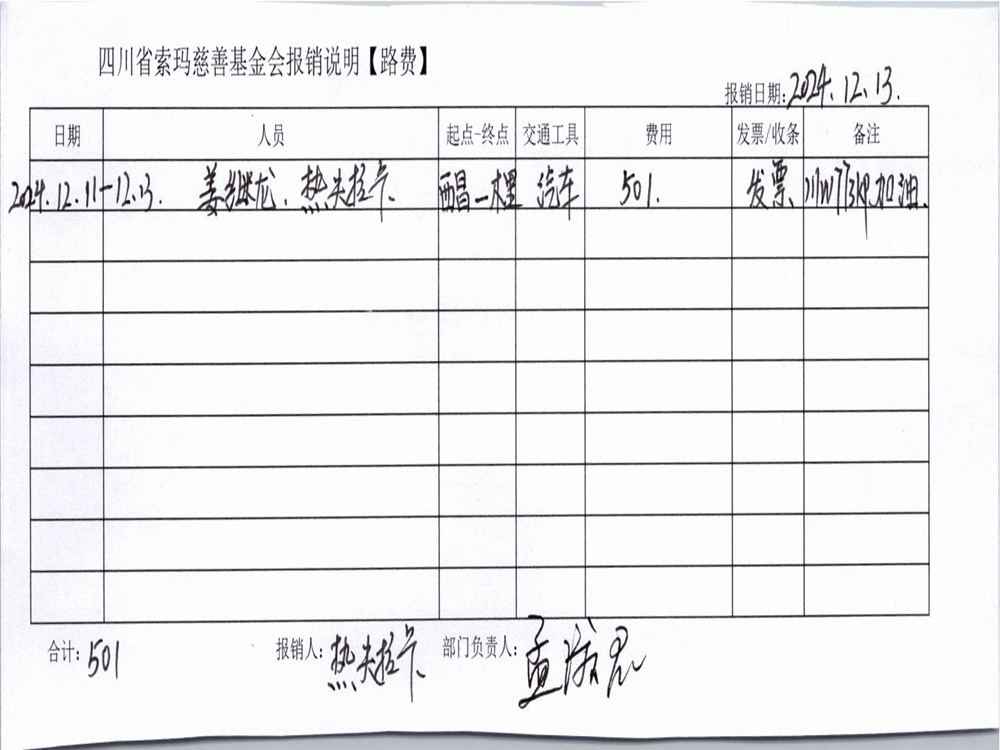 四川省索玛慈善基金会报销说明【路费】
报销日期:2024.12.13.
日期 人员 起点-终点 交通工具 费用 发票/收条 备注
2024.12.11-12.13. 姜继龙、热夫拉卡 西昌-木里 汽车 501. 发票 加油.
合计:501 报销人:热夫拉卡 部门负责人:孟